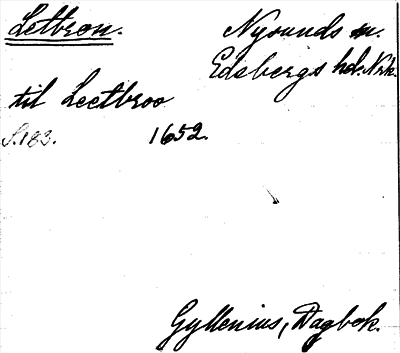 Letbron.
Nysunds sn.
Edsbergs hd. Nrk.
til Leetbroo
S. 183. 1652.
Gyllenius, Dagbok.